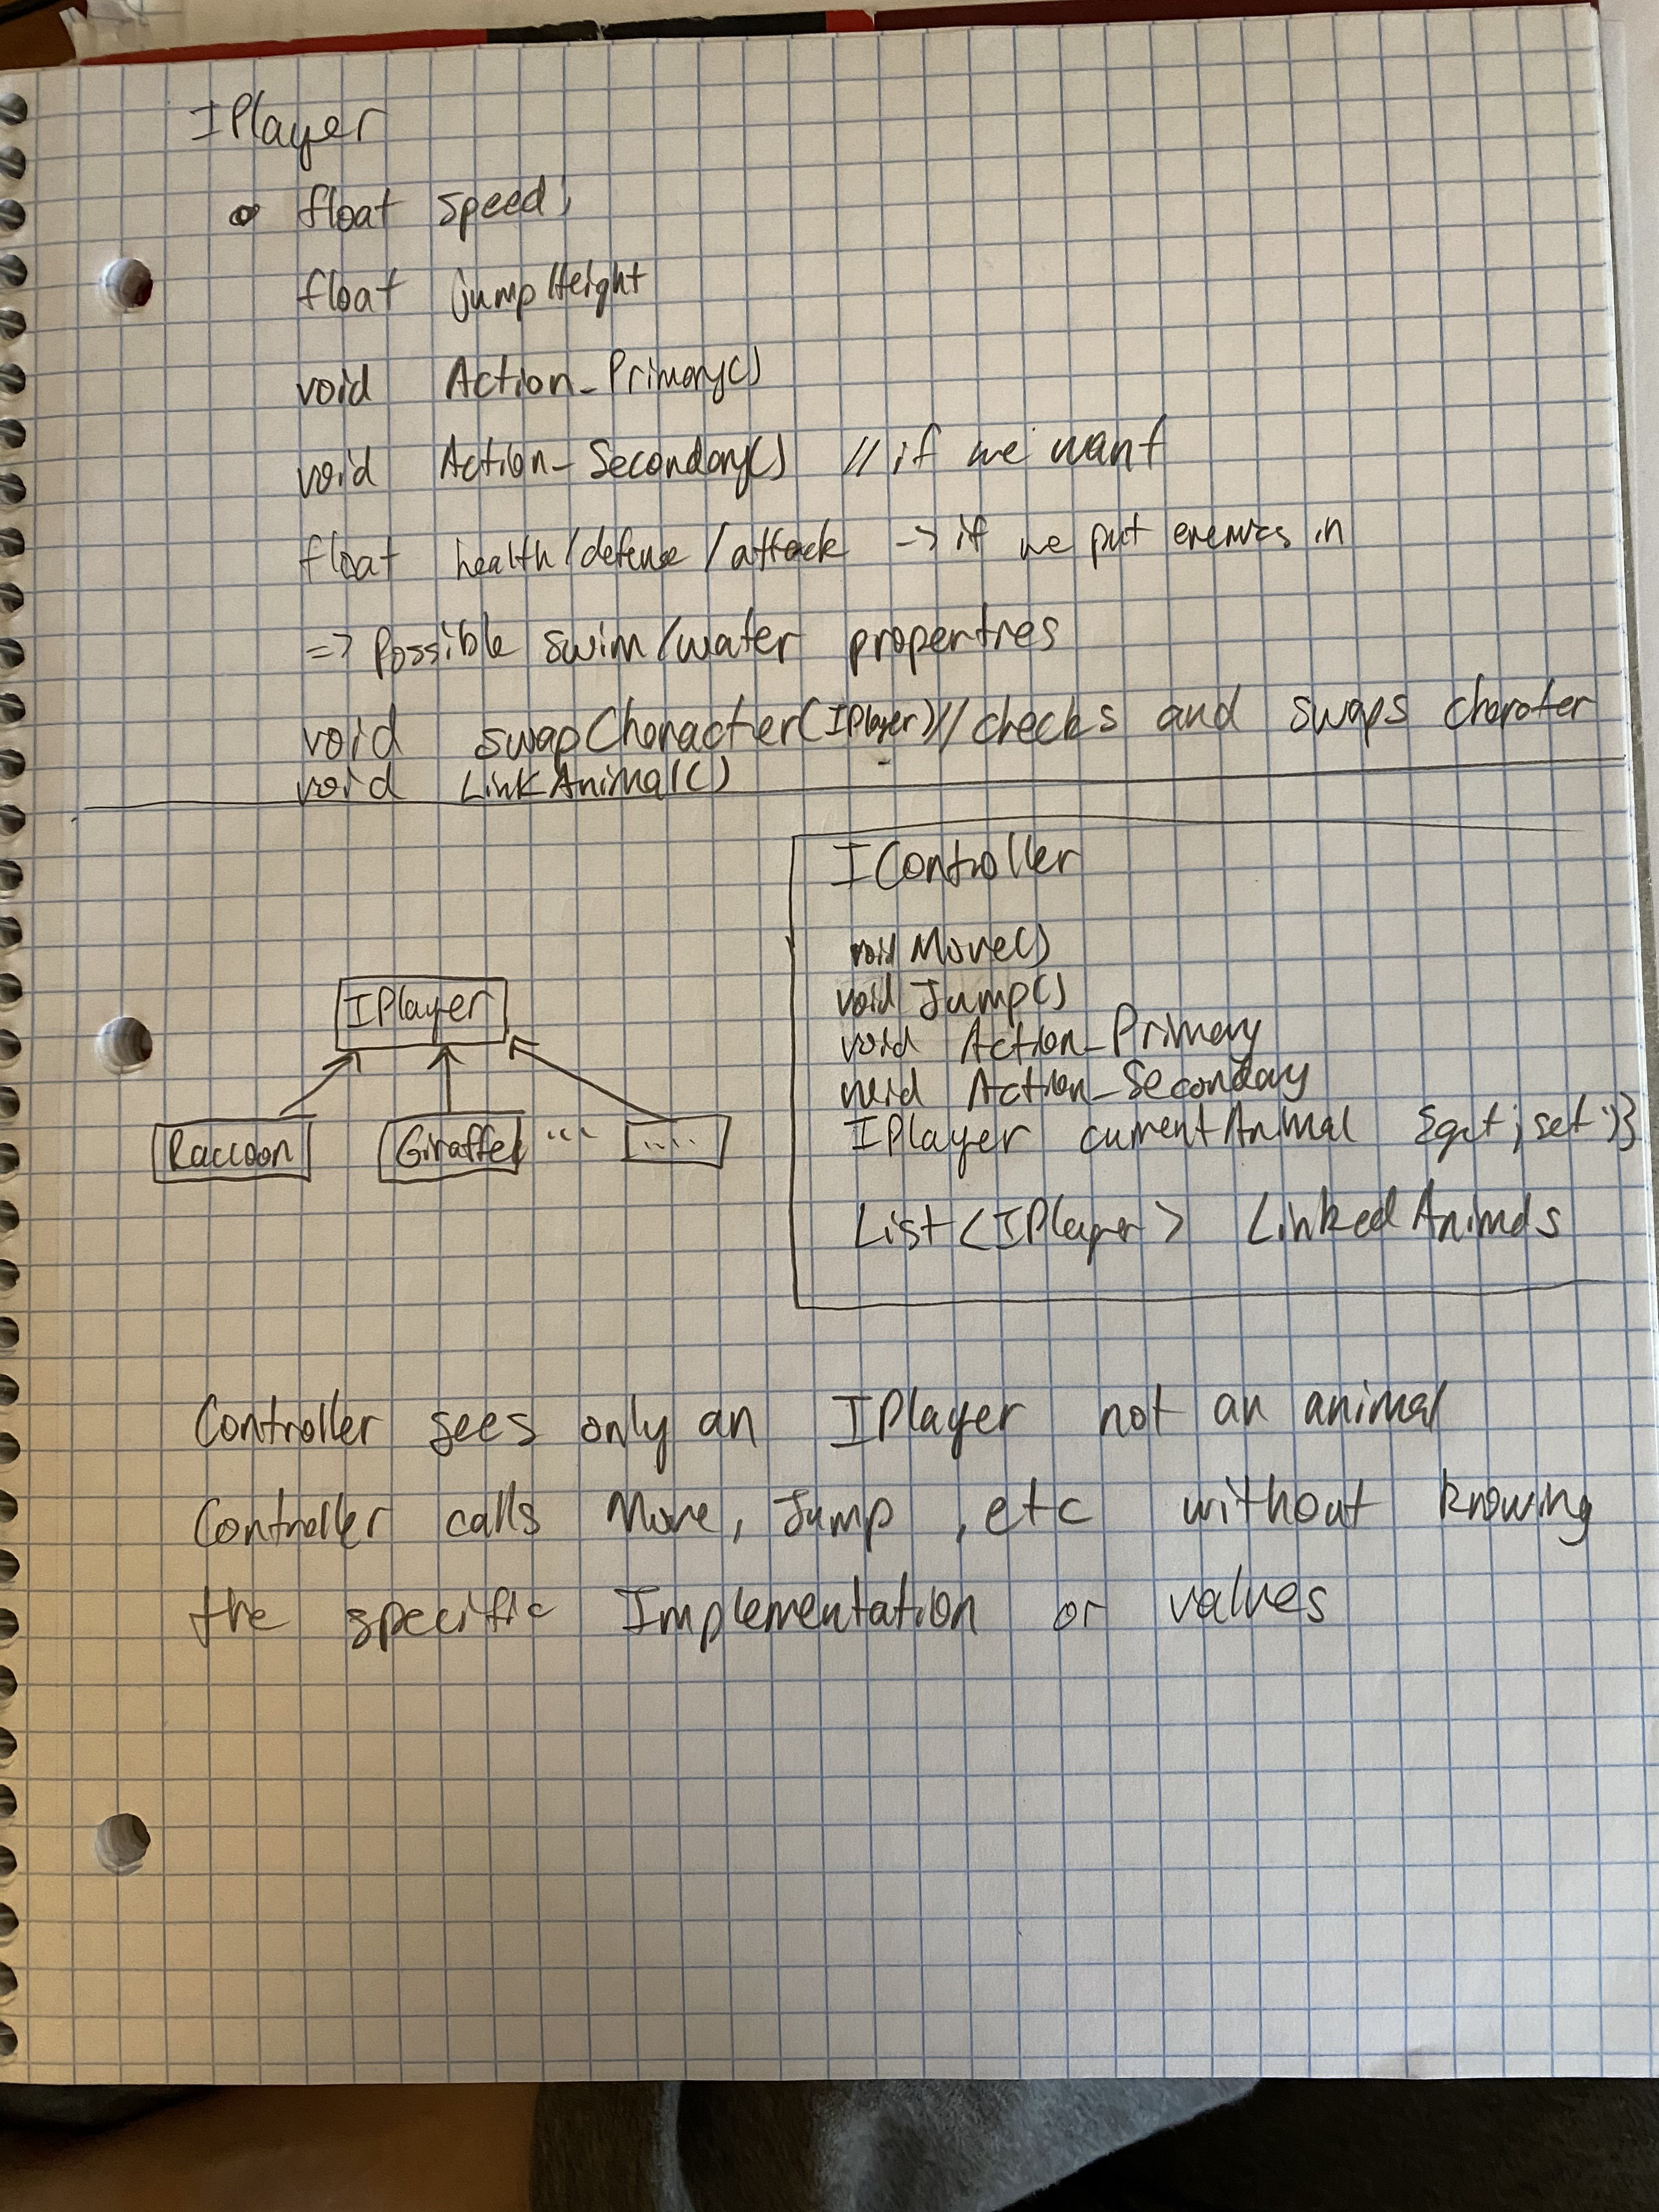 IPlayer
float speed;
float jumpHeight
void Action_Primary()
void Action_Secondary() // if we want
float health/defense/attack -> if we put enemies in
=> Possible swim/water properties
void swapCharacter(IPlayer) // checks and swaps charater
void LinkAnimal()
IController
void Move()
void Jump()
void Action_Primary
void Action_Secondary
IPlayer currentAnimal {get; set;}
List<IPlayer> LinkedAnimals
IPlayer
Raccoon Giraffe ... .....
Controller sees only an IPlayer not an animal
Controller calls Move, Jump, etc without knowing
the specific Implementation or values